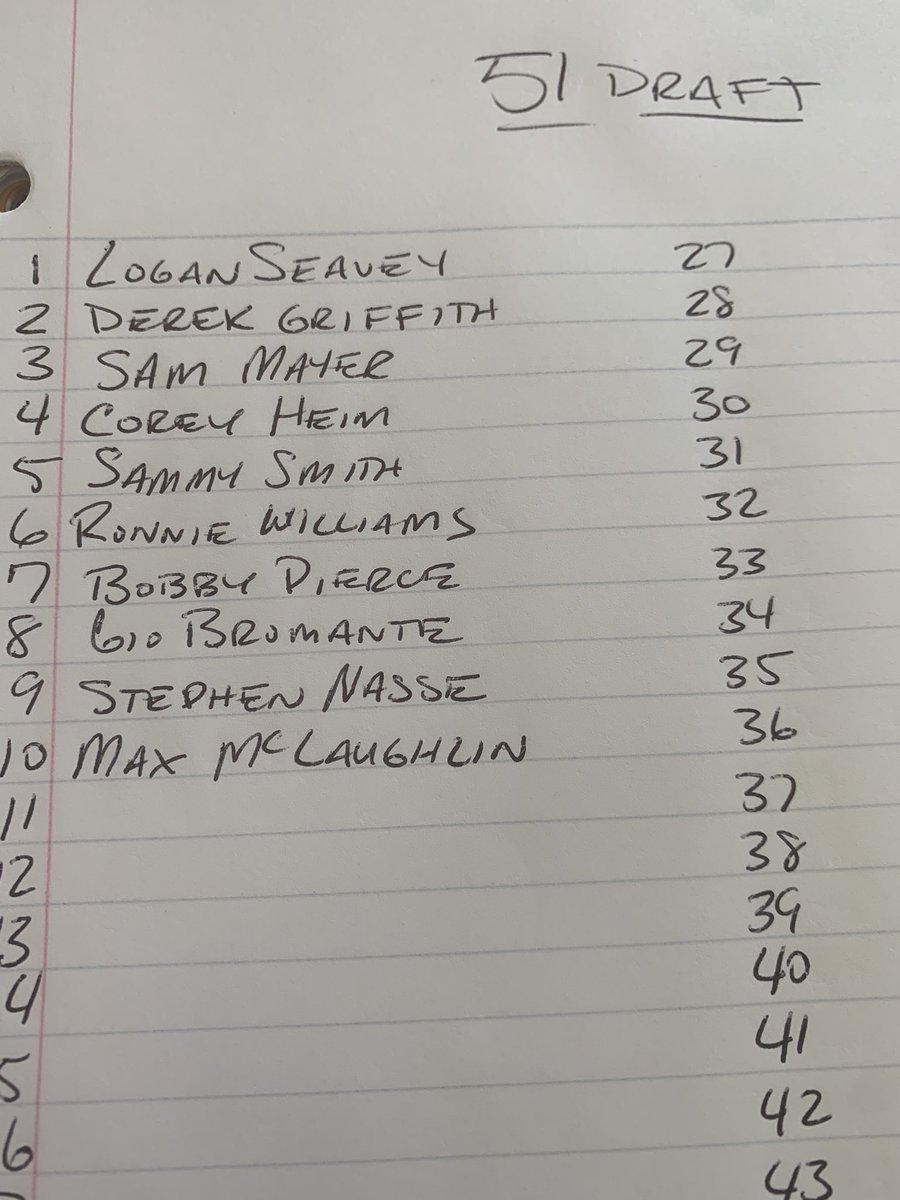 51 DRAFT
1 LOGAN SEAVEY 27
2 DEREK GRIFFITH 28
3 SAM MAYER 29
4 COREY HEIM 30
5 SAMMY SMITH 31
6 RONNIE WILLIAMS 32
7 BOBBY PIERCE 33
8 GIO BROMANTE 34
9 STEPHEN NASSE 35
10 MAX MCLAUGHLIN 36
11 37
12 38
13 39
4 40
5 41
6 42
43